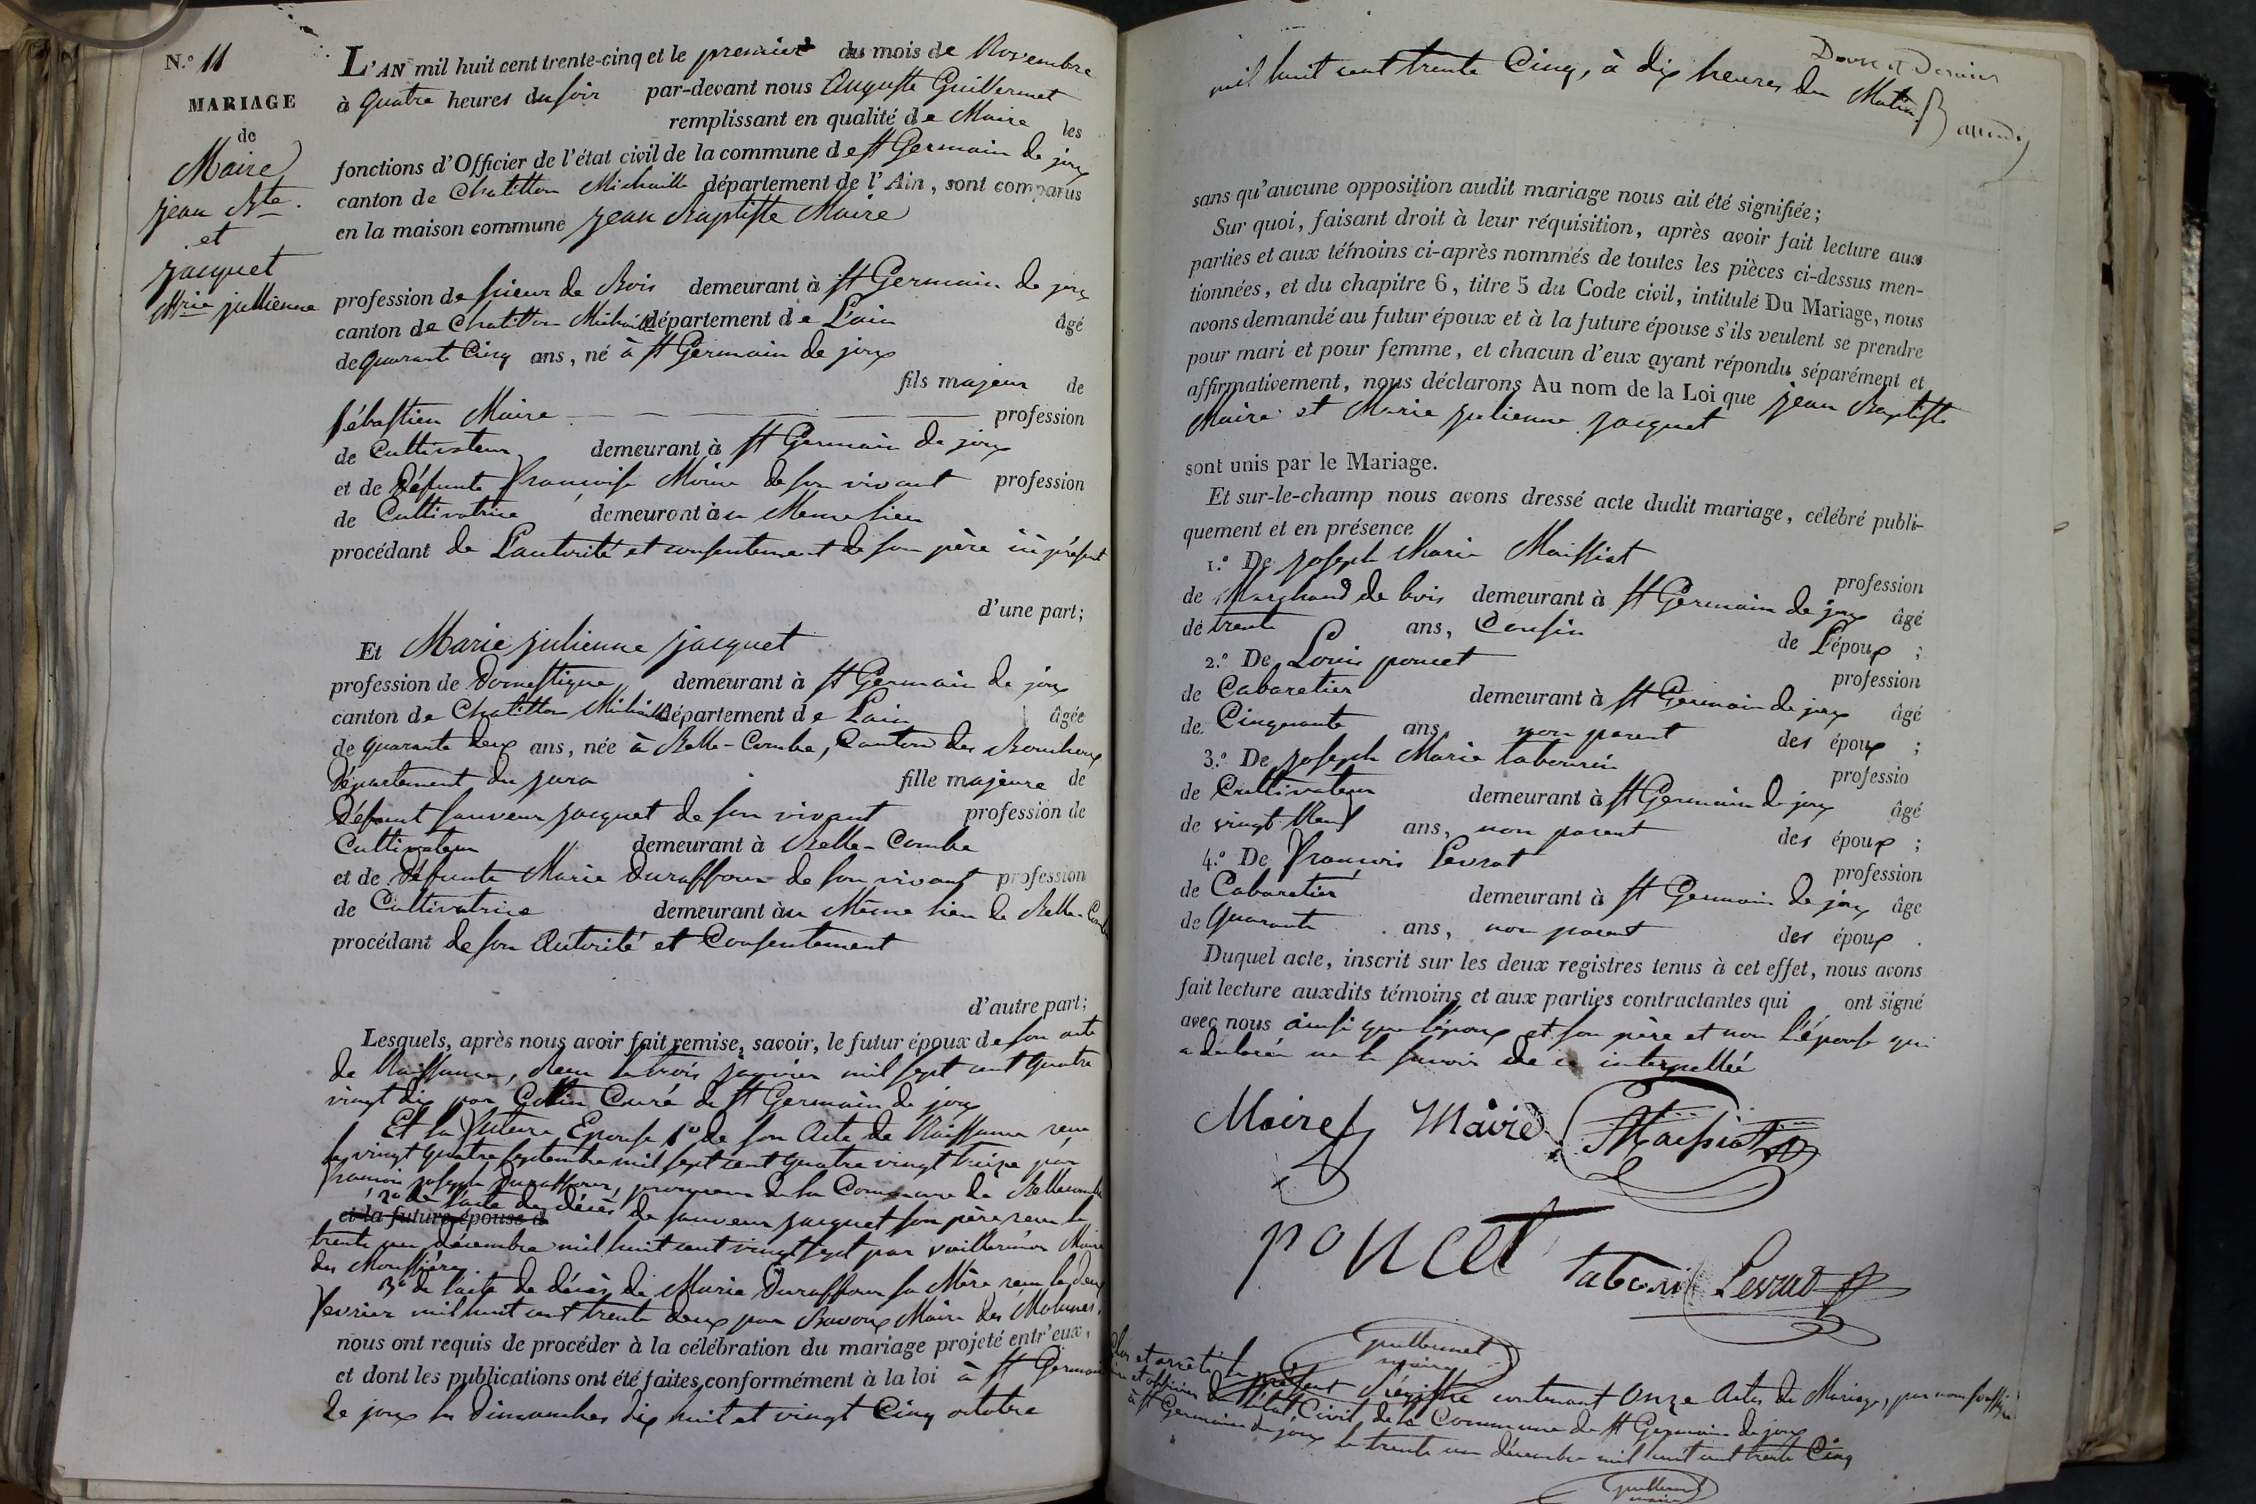 N.º 11
MARIAGE
de
Maire
jean Bte.
et
jacquet
Mrie jullienne
L'AN mil huit cent trente-cinq et le premier du mois de Novembre
à quatre heures du soir par-devant nous Auguste Guillermet
remplissant en qualité de Maire les
fonctions d'Officier de l'état civil de la commune de St Germain de joux
canton de Chatillon Michaille département de l'Ain, sont comparus
en la maison commune jean Baptiste Maire
profession de scieur de Bois demeurant à St Germain de joux
canton de Chatillon Michaille département de L'ain âgé
de quarant Cinq ans, né à St Germain de joux
fils majeur de
sébastien Maire profession
de Cultivateur demeurant à St Germain de joux
et de défunte françoise Moine de son vivant profession
de Cultivatrice demeurant à u Meme lieu
procédant de L'autorité et consentement de son père ici présent
d'une part;
Et Marie julienne jacquet
profession de Domestique demeurant à St Germain de joux
canton de Chatillon Michaille département de Lain âgée
de quarante deux ans, née à Belle-Combe, Canton des Bouchoux
Département du jura fille majeure de
Défunt sauveur jacquet de son vivant profession de
Cultivateur demeurant à Belle-Combe
et de défunte Marie Duraffour de son vivant profession
de Cultivatrice demeurant à u Même lieu de Belle-Combe
procédant de son Autorité et Consentement
d'autre part;
Lesquels, après nous avoir fait remise, savoir, le futur époux de son acte
de Naissance, reçu le trois janvier mil sept cent quatre
vingt dix par Collin Curé de St Germain de joux
Et la future Epouse 1º de son Acte de Naissance reçu
le vingt quatre septembre mil sept cent quatre vingt treize par
françois joseph Duraffour, procureur de la Commune de Bellecombe
2º de l'acte de décès de sauveur jacquet son père reçu le
et la future épouse d
trente un décembre mil huit cent vingt sept par vuillermoz Maire
des Moussières
3º de l'acte de décès de Marie Duraffour sa Mère reçu le deux
fevrier mil huit cent trente deux par Bavoux Maire des Molunes.
nous ont requis de procéder à la célébration du mariage projeté entr'eux,
et dont les publications ont été faites conformément à la loi à St Germain
de joux les Dimanches dix huit et vingt Cinq octobre
Douze et Dernier
mil huit cent trente Cinq, à dix heures du Matin
sans qu'aucune opposition audit mariage nous ait été signifiée;
Sur quoi, faisant droit à leur réquisition, après avoir fait lecture aux
parties et aux témoins ci-après nommés de toutes les pièces ci-dessus men-
tionnées, et du chapitre 6, titre 5 du Code civil, intitulé Du Mariage, nous
avons demandé au futur époux et à la future épouse s'ils veulent se prendre
pour mari et pour femme, et chacun d'eux ayant répondu séparément et
affirmativement, nous déclarons Au nom de la Loi que jean Baptiste
Maire et Marie julienne jacquet
sont unis par le Mariage.
Et sur-le-champ nous avons dressé acte dudit mariage, célébré publi-
quement et en présence
1.º De joseph Marie Maissiat
profession
de Marchand de bois demeurant à St Germain de joux âgé
de trente ans, Cousin de L'époux ;
2.º De Louis poncet
profession
de Cabaretier demeurant à St Germain de joux âgé
de Cinquante ans non parent des époux ;
3.º De joseph Marie tabourin
professio
de Cultivateur demeurant à St Germain de joux âgé
de vingt Neuf ans, non parent des époux ;
4.º De françois Levrat
profession
de Cabaretier demeurant à St Germain de joux âge
de quarante ans, non parent des époux .
Duquel acte, inscrit sur les deux registres tenus à cet effet, nous avons
fait lecture auxdits témoins et aux parties contractantes qui ont signé
avec nous ainsi que l'époux et son père et non L'épouse qui
a déclaré ne le savoir de ce interpellée
Maire Maire Maissiat
poncet tabouri Levrat
guillermet
maire
Clos et arrêté le présent Régistre contenant Onze Actes de Mariage, par nous soussigné
Maire et officier de l'état Civil de la Commune de St Germain de joux
à St Germain de joux le trente un décembre mil huit cent trente Cinq
guillermet
maire